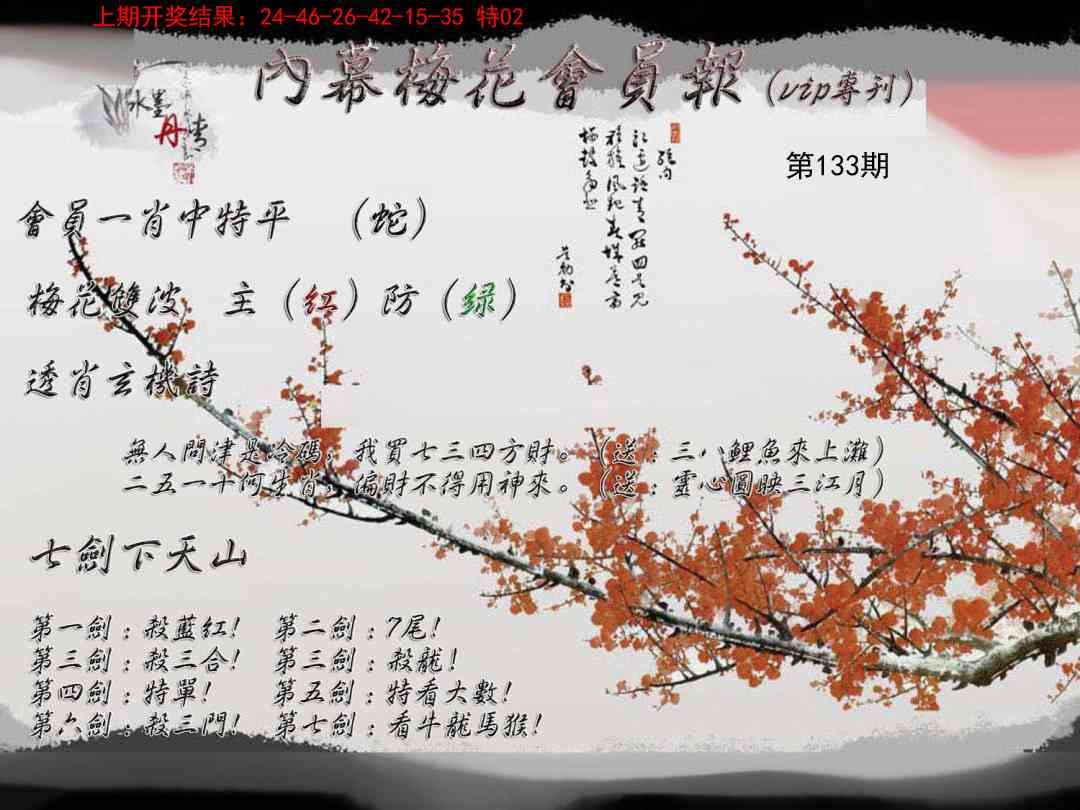 上期开奖结果：24-46-26-42-15-35 特02
內幕梅花會員報（vip專刊）
水墨
丹青
第133期
會員一肖中特平 （蛇）
梅花雙波 主（红）防（绿）
透肖玄機詩
無人問津是冷碼，我買七三四方財。（送：三八鯉魚來上灘）
二五一十何生肖，偏財不得用神來。（送：靈心圓映三江月）
七劍下天山
第一劍：殺藍紅！ 第二劍：7尾！
第三劍：殺三合！ 第三劍：殺龍！
第四劍：特單！ 第五劍：特看大數！
第六劍：殺三門！ 第七劍：看牛龍馬猴！